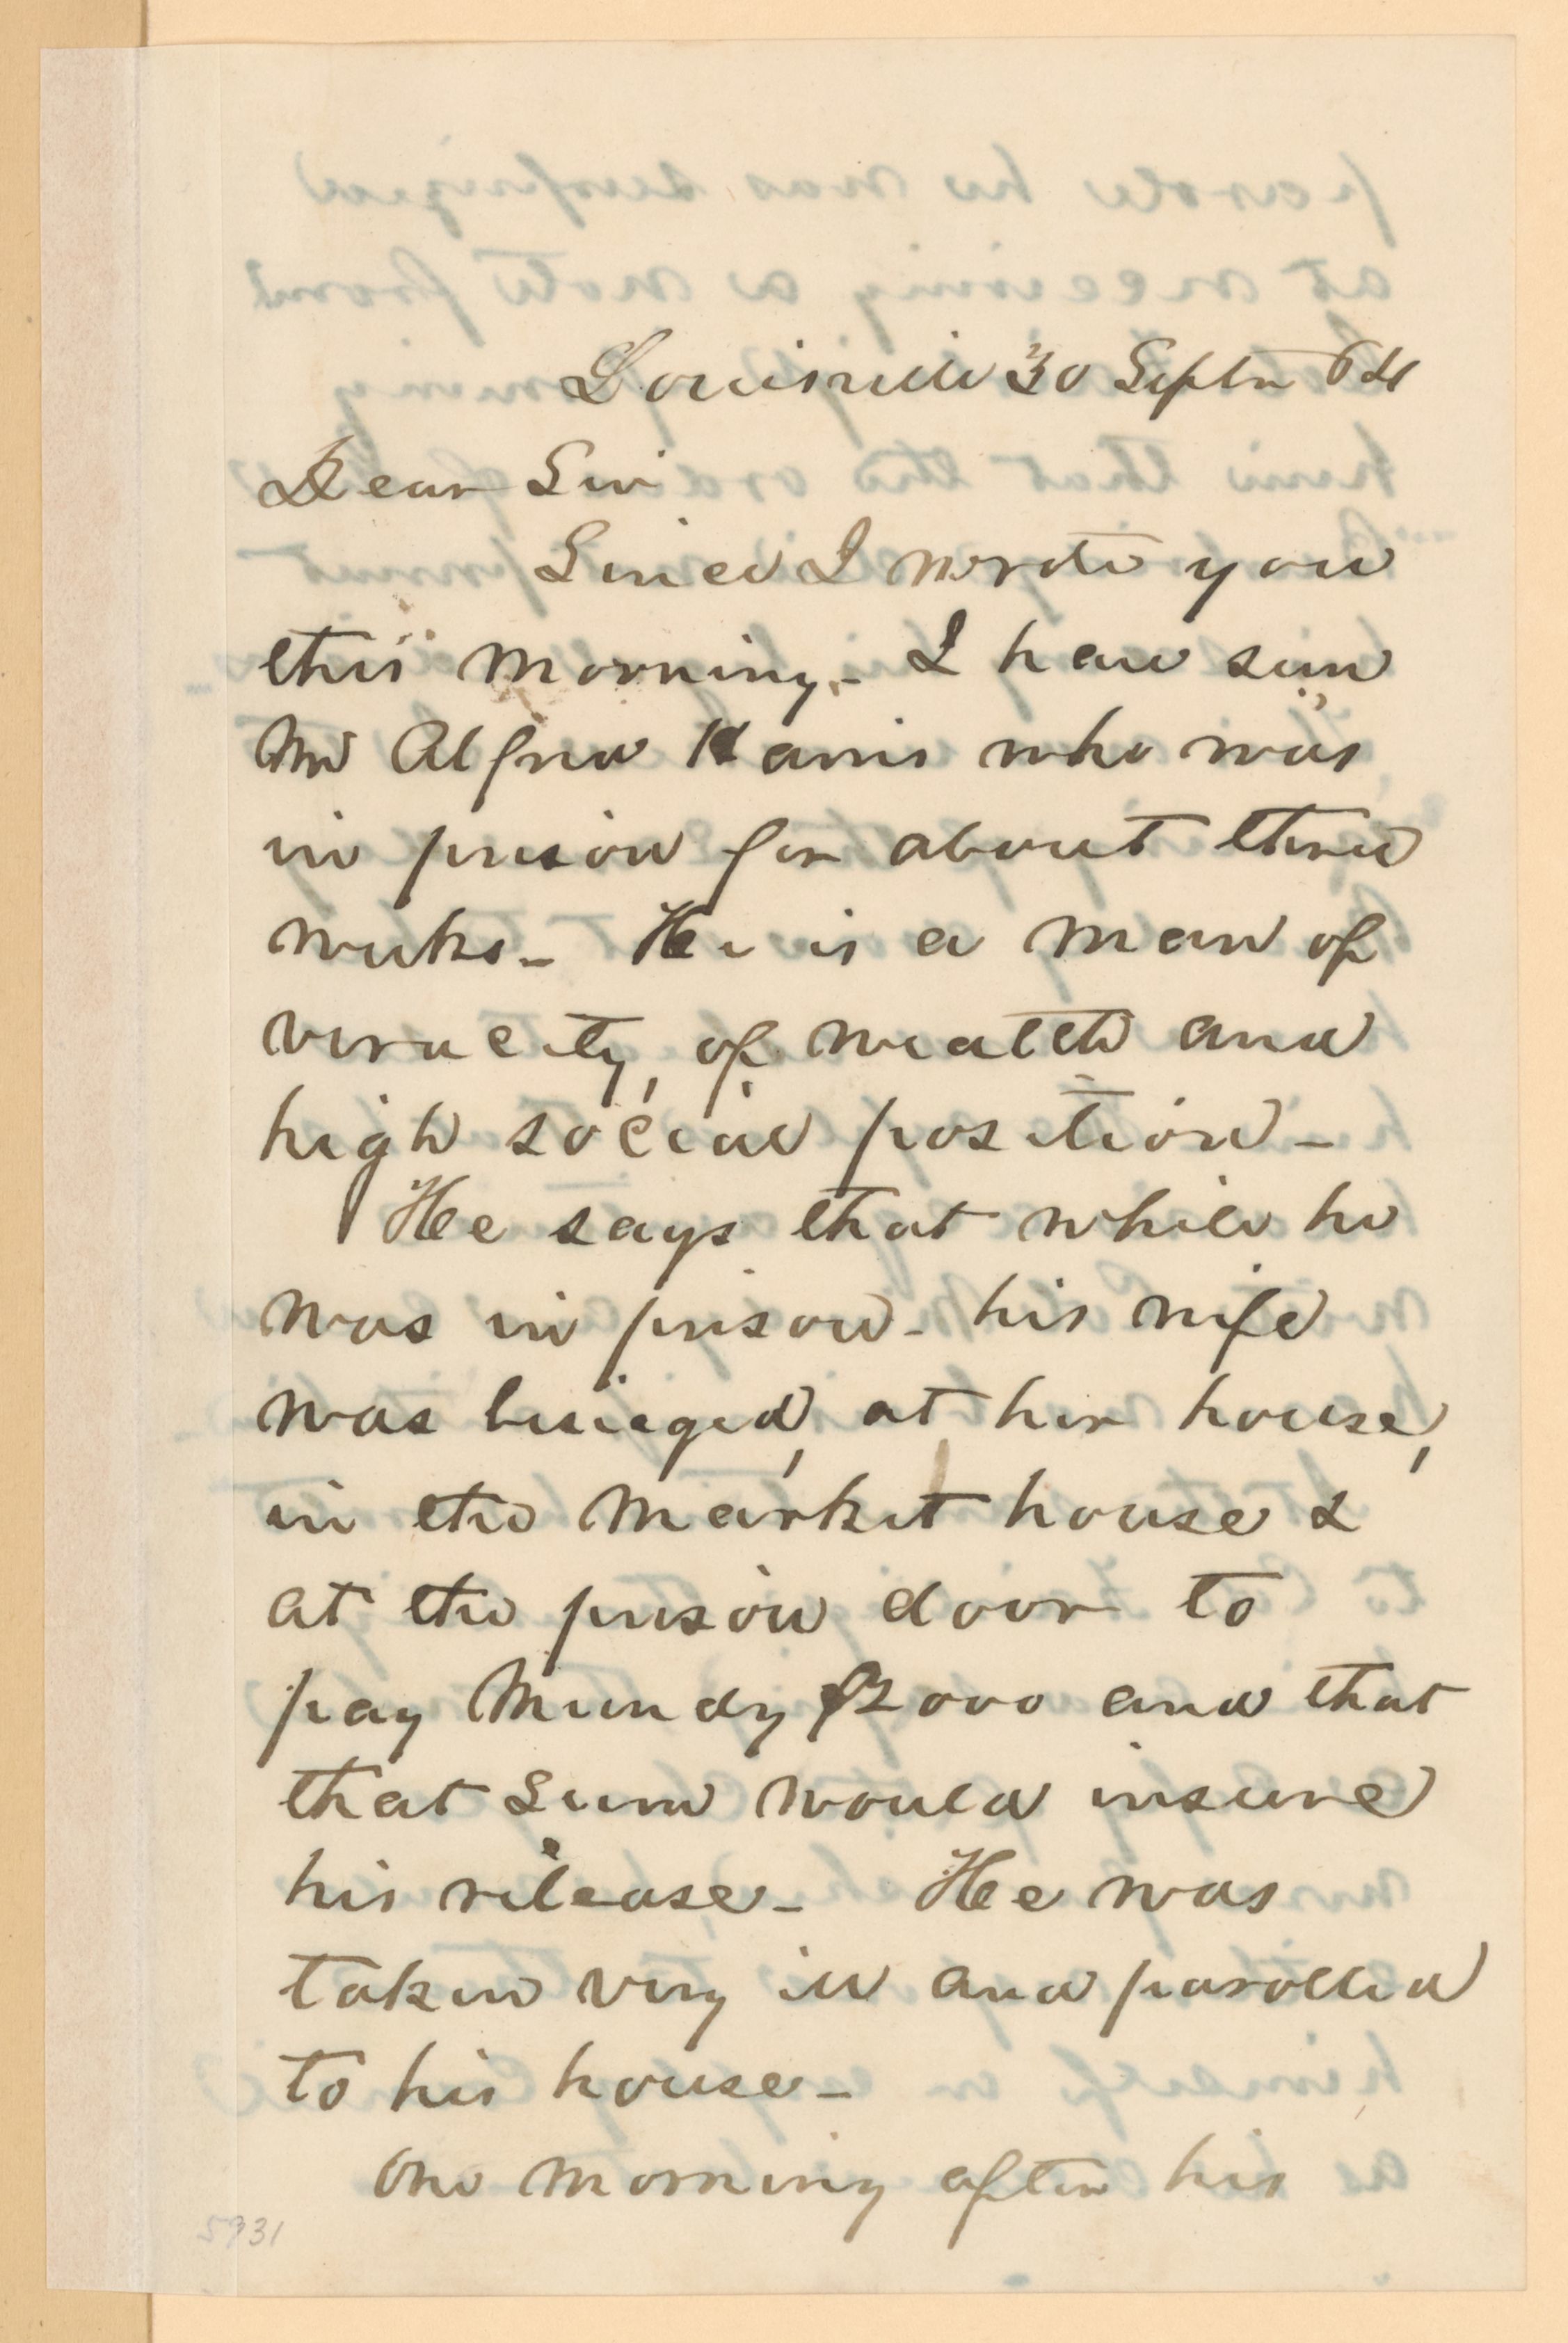 Louisville 30 Septr 64
Dear Sir
Since I wrote you
this morning - I have seen
Mr Alfred Harris who was
in prison for about three
weeks - He is a man of
veracity, of wealth and
high social position -
He says that while he
was in prison - his wife
was besieged, at her house,
in the market house &
at the prison door to
pay Mundy $2000 and that
that sum would insure
his release - He was
taken very ill and parolled
to his house -
One morning after his
5931